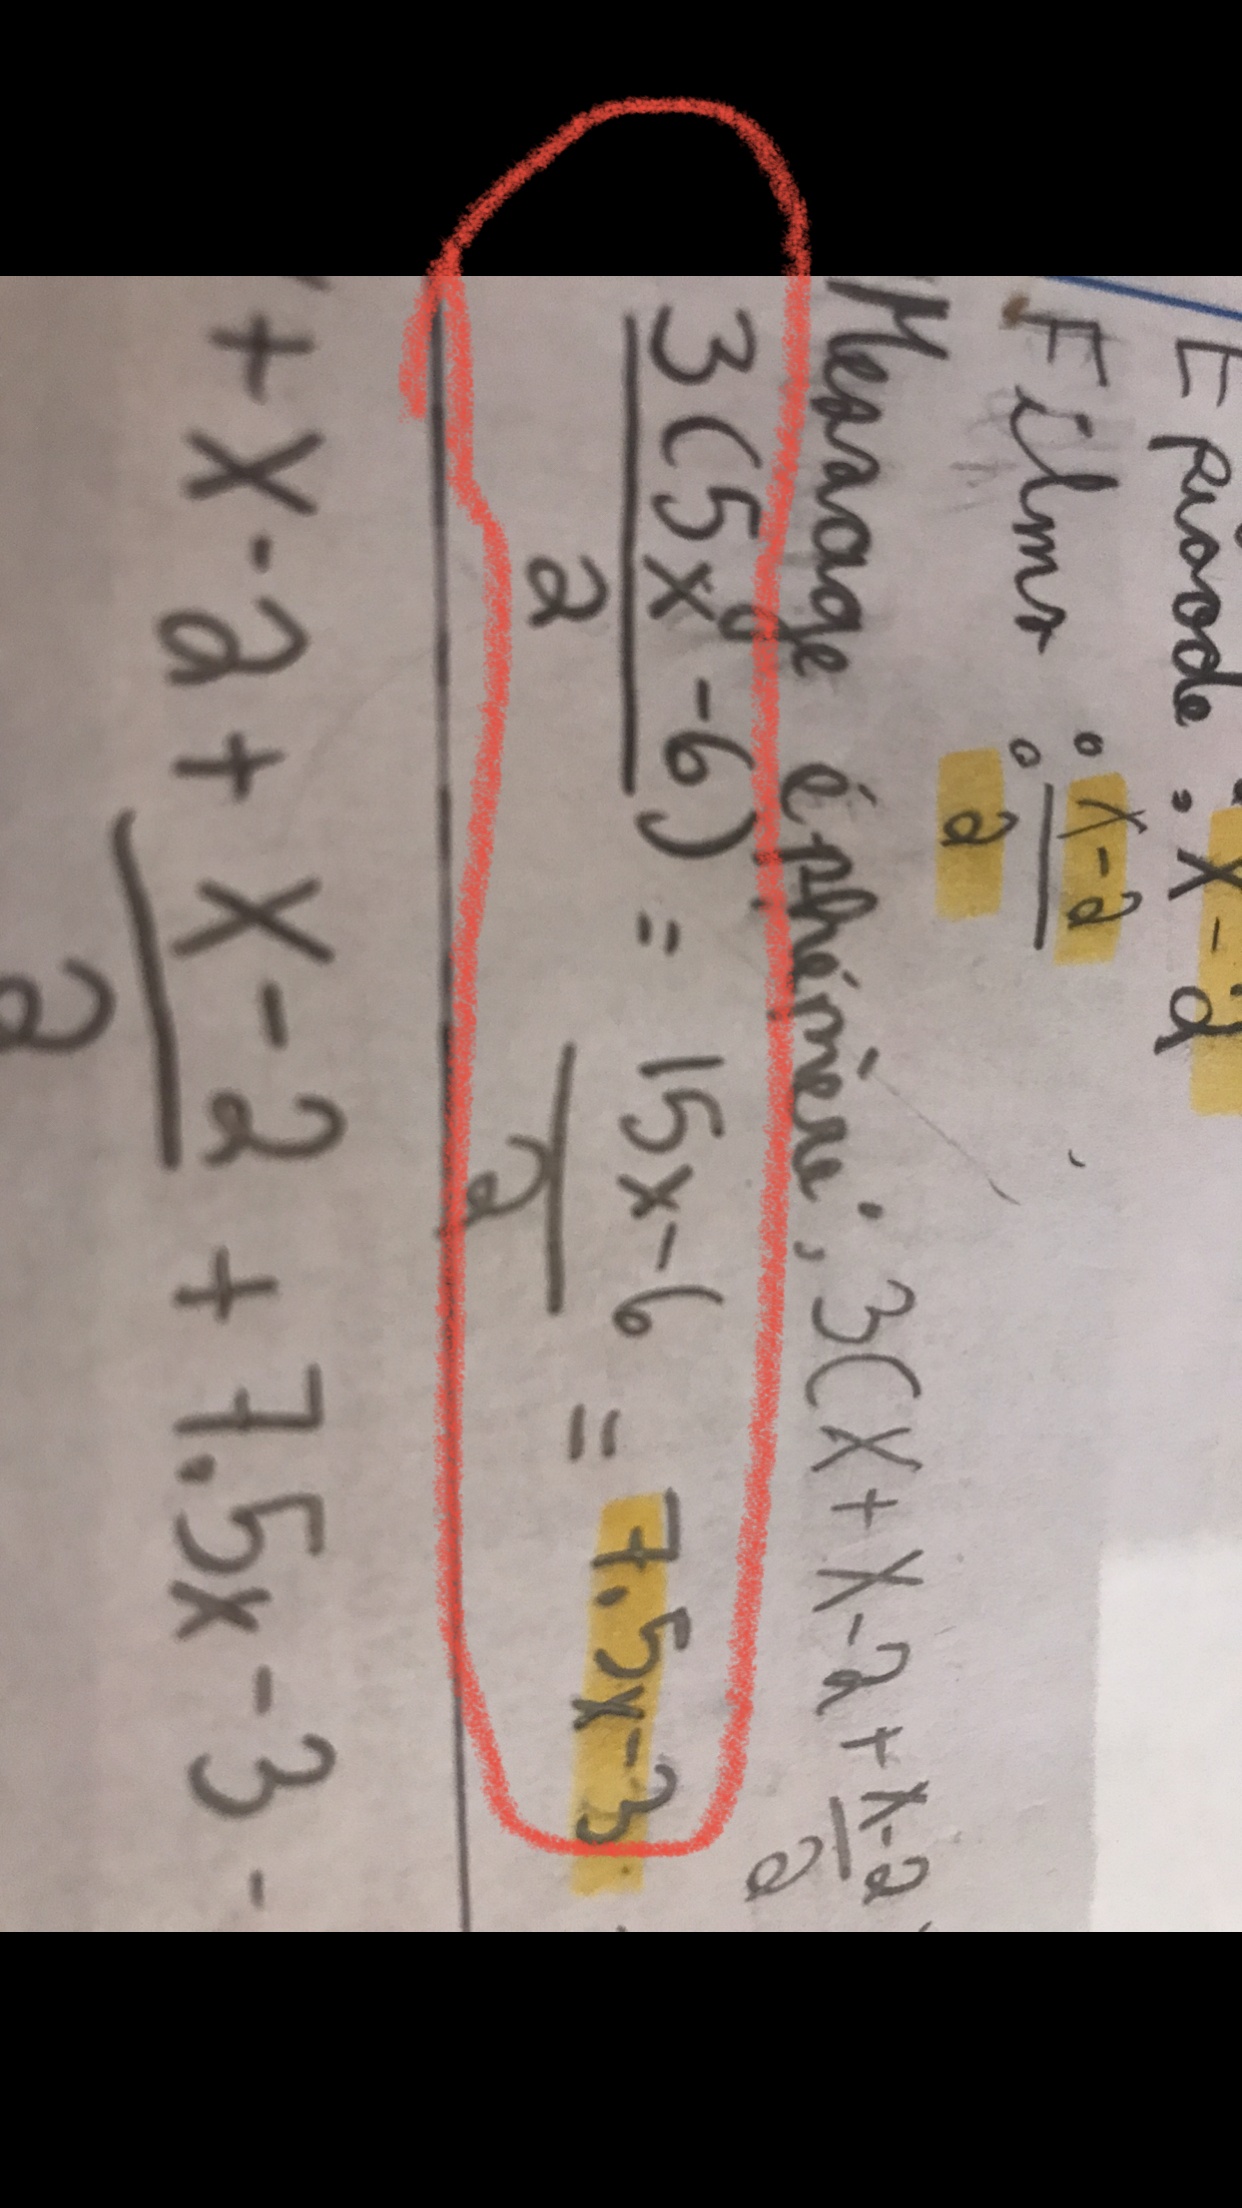 Episode : x-2
Films : x-2
2
Message éphémère : 3(x+x-2+x-2
2
3(5x-6) = 15x-6 = 7,5x-3
2 2
+x-2+x-2+7,5x-3-
2